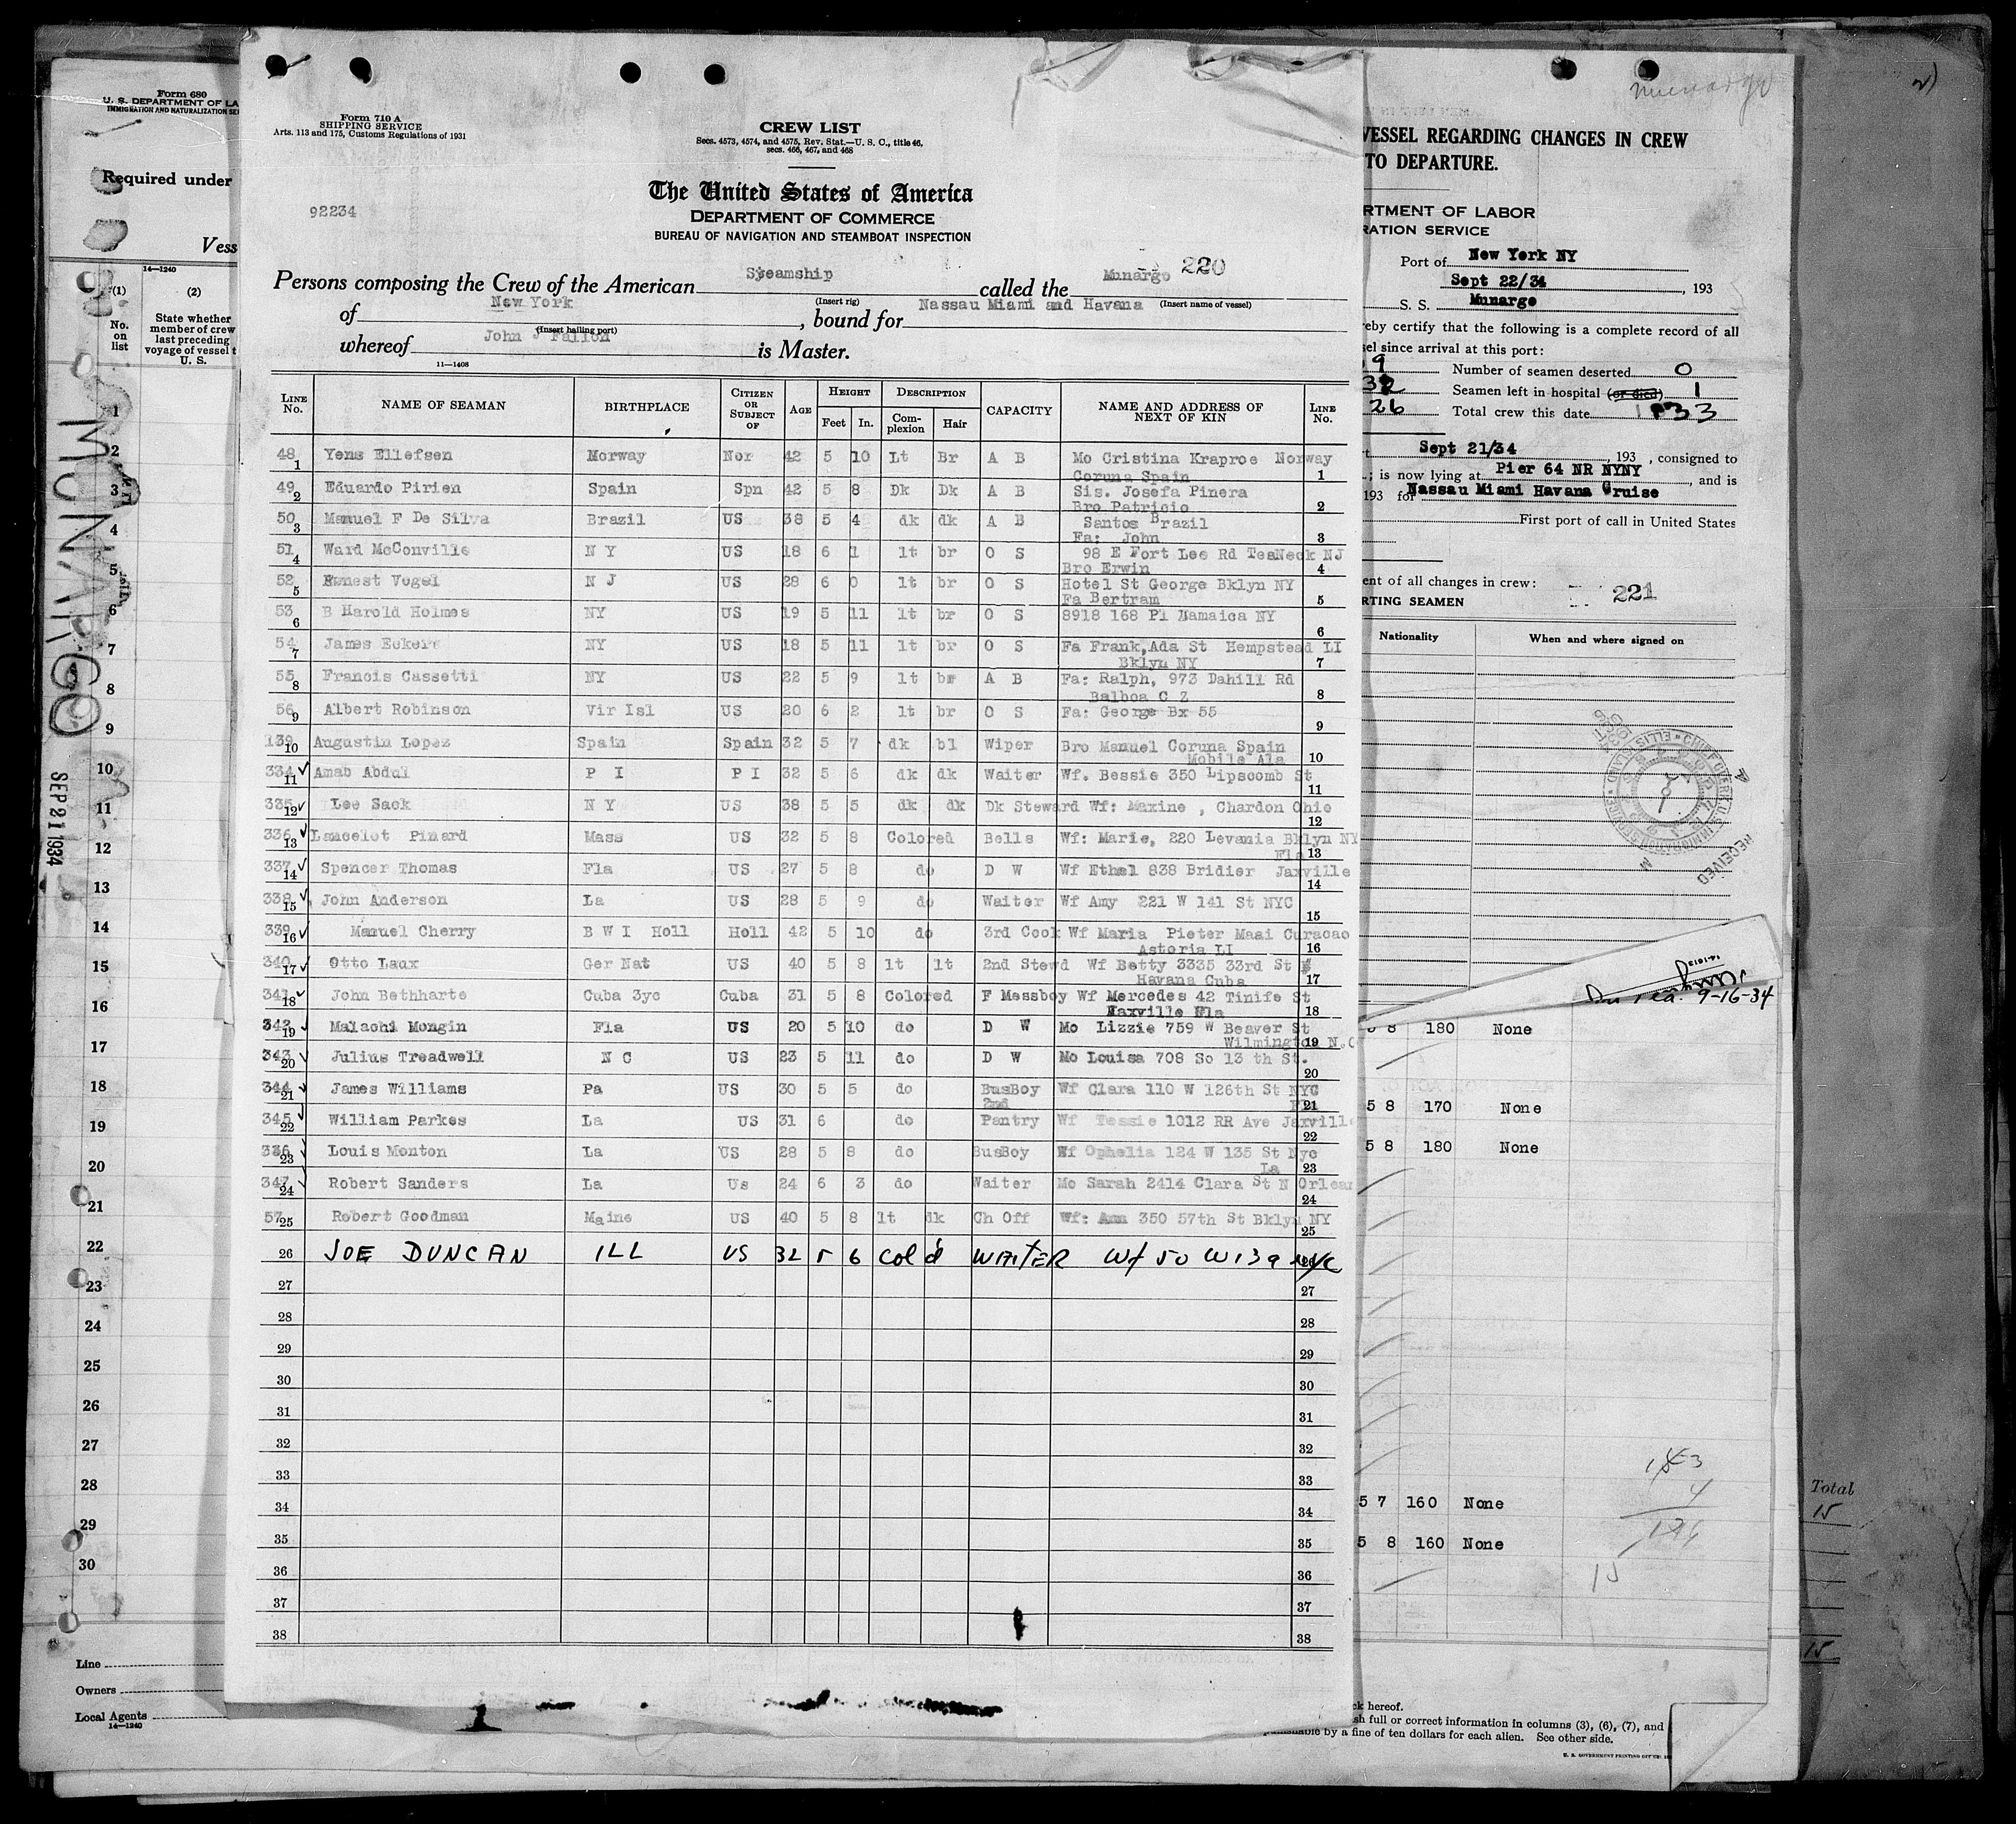 Form 710 A
SHIPPING SERVICE
Arts. 113 and 175, Customs Regulations of 1931
CREW LIST
Secs. 4573, 4574, and 4575, Rev. Stat.—U. S. C., title 46,
secs. 466, 467, and 468
The United States of America
DEPARTMENT OF COMMERCE
BUREAU OF NAVIGATION AND STEAMBOAT INSPECTION
92234
220
Persons composing the Crew of the American Syeamship called the Munargo
(Insert rig) (Insert name of vessel)
of New York, bound for Nassau Miami and Havana
(Insert hailing port)
whereof John J Fallon is Master.
11—1408
LINE No. NAME OF SEAMAN BIRTHPLACE CITIZEN OR SUBJECT OF AGE HEIGHT Feet In. DESCRIPTION Complexion Hair CAPACITY NAME AND ADDRESS OF NEXT OF KIN LINE No.
48 1 Yens Ellefsen Morway Nor 42 5 10 Lt Br A B Mo Cristina Kraproe Norway 1
Coruna Spain
49 2 Eduardo Pirien Spain Spn 42 5 8 Dk Dk A B Sis. Josefa Pinera 2
Bro Patricio
50 3 Manuel F De Silva Brazil US 38 5 4 dk dk A B Santos Brazil 3
Fa: John
51 4 Ward McConville N Y US 18 6 1 lt br O S 98 E Fort Lee Rd TeaNeck NJ 4
Bro Erwin
52 5 Ernest Vogel N J US 28 6 0 lt br O S Hotel St George Bklyn NY 5
Fa Bertram
53 6 B Harold Holmes NY US 19 5 11 lt br O S 8918 168 Pl Jamaica NY 6
54 7 James Eckers NY US 18 5 11 lt br O S Fa Frank, Ada St Hempstead LI 7
Bklyn NY
55 8 Francis Cassetti NY US 22 5 9 lt br A B Fa: Ralph, 973 Dahill Rd 8
Balboa C Z
56 9 Albert Robinson Vir Isl US 20 6 2 lt br O S Fa: George Bx 55 9
139 10 Augustin Lopez Spain Spain 32 5 7 dk bl Wiper Bro Manuel Coruna Spain 10
Mobile Ala
334 11 Amab Abdul P I P I 32 5 6 dk dk Waiter Wf. Bessie 350 Lipscomb St 11
335 12 Lee Sack N Y US 38 5 5 dk dk Dk Steward Wf: Maxine , Chardon Ohio 12
336 13 Lancelot Pinard Mass US 32 5 8 Colored Bells Wf: Marie, 220 Levania Bklyn NY 13
Fla
337 14 Spencer Thomas Fla US 27 5 8 do D W Wf Ethel 838 Bridier Jaxville 14
338 15 John Anderson La US 28 5 9 do Waiter Wf Amy 221 W 141 St NYC 15
339 16 Manuel Cherry B W I Holl Holl 42 5 10 do 3rd Cook Wf Maria Pieter Maai Curacao 16
Astoria LI
340 17 Otto Laux Ger Nat US 40 5 8 lt lt 2nd Stewd Wf Betty 3335 33rd St 17
Havana Cuba
341 18 John Bethharte Cuba 3yc Cuba 31 5 8 Colored F Messboy Wf Mercedes 42 Tinife St 18
Jaxville Fla
342 19 Malachi Mongin Fla US 20 5 10 do D W Mo Lizzie 759 W Beaver St 19
Wilmington N.C
343 20 Julius Treadwell N C US 23 5 11 do D W Mo Louisa 708 So 13 th St. 20
344 21 James Williams Pa US 30 5 5 do BusBoy Wf Clara 110 W 126th St NYC 21
2nd
345 22 William Parkes La US 31 6 do Pantry Wf Tessie 1012 RR Ave Jaxville 22
336 23 Louis Monton La US 28 5 8 do BusBoy Wf Ophelia 124 W 135 St Nyc 23
La
347 24 Robert Sanders La Us 24 6 3 do Waiter Mo Sarah 2414 Clara St N Orlean 24
57 25 Robert Goodman Maine US 40 5 8 lt dk Ch Off Wf: Ann 350 57th St Bklyn NY 25
26 JOE DUNCAN ILL US 32 5 6 Col'd WAITER Wf 50 W 139 NYC 26
27 27
28 28
29 29
30 30
31 31
32 32
33 33
34 34
35 35
36 36
37 37
38 38
Form 680
U. S. DEPARTMENT OF LA
IMMIGRATION AND NATURALIZATION SE
Required under
Vess
14—1240
(1) (2)
No. on list
State whether
member of crew
last preceding
voyage of vessel t
U. S.
MUNARGO
SEP 21 1934
1
2
3
4
5
6
7
8
9
10
11
12
13
14
15
16
17
18
19
20
21
22
23
24
25
26
27
28
29
30
Line
Owners
Local Agents
14—1240
Munargo
VESSEL REGARDING CHANGES IN CREW
TO DEPARTURE.
RTMENT OF LABOR
RATION SERVICE
Port of New York NY
Sept 22/34, 193
S. S. Munargo
eby certify that the following is a complete record of all
sel since arrival at this port:
9 Number of seamen deserted 0
32 Seamen left in hospital (or died) 1
26 Total crew this date 133
Sept 21/34, 193 , consigned to
; is now lying at Pier 64 NR NYNY, and is
193 for Nassau Miami Havana Cruise
First port of call in United States
ent of all changes in crew:
RTING SEAMEN
221
Nationality When and where signed on
RECEIVED
14-1613
9-16-34
5 8 180 None
5 8 170 None
5 8 180 None
5 7 160 None
5 8 160 None
15
Total
15
15
ck hereof.
sh full or correct information in columns (3), (6), (7), and
punishable by a fine of ten dollars for each alien. See other side.
U. S. GOVERNMENT PRINTING OFFICE